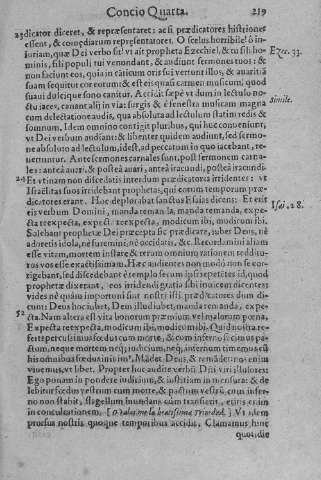 Concio Quarta. 219
agdicator diceret, & repræsentaret: ac si prædicatores histriones
essent, & comœdiarum repræsentatores. O scelus horribile! ô in-
iuriam, quæ Dei verbo fit! vt ait propheta Ezechiel; & tu fili ho-
minis, filii populi tui
& audiunt sermones tuos: & Ezec. 33.
non faciunt eos, quia in canticum oris sui vertunt illos, & auaritiã
suam sequitur cor eorum: & est eis quasi carmen musicum, quod
suaui dulcique sono canitur. Accidit sæpè vt dum in lectulo no-
ctu iaces, canant alij in via: surgis & è fenestra musicam magna Simile.
cum delectatione audis, qua absoluta ad lectulum statim redis &
somnum. Idem omnino contigit pluribus, qui huc conueniunt,
vt Dei verbum audiant: & libenter quidem audiunt, sed sermo-
ne absoluto ad lectulum, id est, ad peccatum in quo iacebant, re-
uertuntur. Ante sermones carnales sunt, post sermonem carna-
les: antea auari, & postea auari, antea iracundi, postea iracundi.
Et vtinam non discedatis interdum prædicatores irridentes: vt
Israëlitæ suos irridebant prophetas, qui eorum temporum præ-
dicatores erant. Hoc deplorabat sanctus Esaias dicens: Et erit
eis verbum Domini, manda remanda, manda remanda, expe- Isai. 28.
cta reexpecta, expecta reexpecta, modicum ibi, modicum ibi.
Solebant prophetæ Dei præcepta sic prædicare, iubet Deus, nè
adoretis idola, nè furemini, nè occidatis, &c. Recordamini aliam
esse vitam, mortem instare & rerum omnium rationem redditu-
ros vos esse exactissimam. Hæc audientes non modò non se cor-
rigebant, sed discedebant è templo secum ipsi repetẽtes id, quod
prophetæ dixerant, eos irridendi gratia sibi inuicem dicentes
vides nè quàm importuni sunt nostri isti prædicatores dum di-
cunt: Deus hoc iubet, Deus illud iubet, manda remanda, expe-
cta. Nam altera est vita bonorum præmium vel malorum pœna.
Expecta reexpecta, modicum ibi, modicum ibi. Quid nostra re-
fert percussimus fœdus cum morte, & cum inferno fecimus pa-
ctum, neque mortem neq; iudicium, neq; infernum timemus cũ
his omnibus fœdus iniimus. Mandet Deus, & remandet: nos enim
viuemus, vt libet. Propter hoc audite verbũ Dñi viri illusores:
Ego ponam in pondere iudicium, & iustitiam in mensura: & de
lebitur fœdus vestrum cum morte, & pactum vestrũ cum infer-
no non stabit, flagellum inundans cum transierit, eritis ei in
in conculcationem.
Vt idem
prorsus nostris quoque temporibus accidit. Clamamus hinc
quotidie